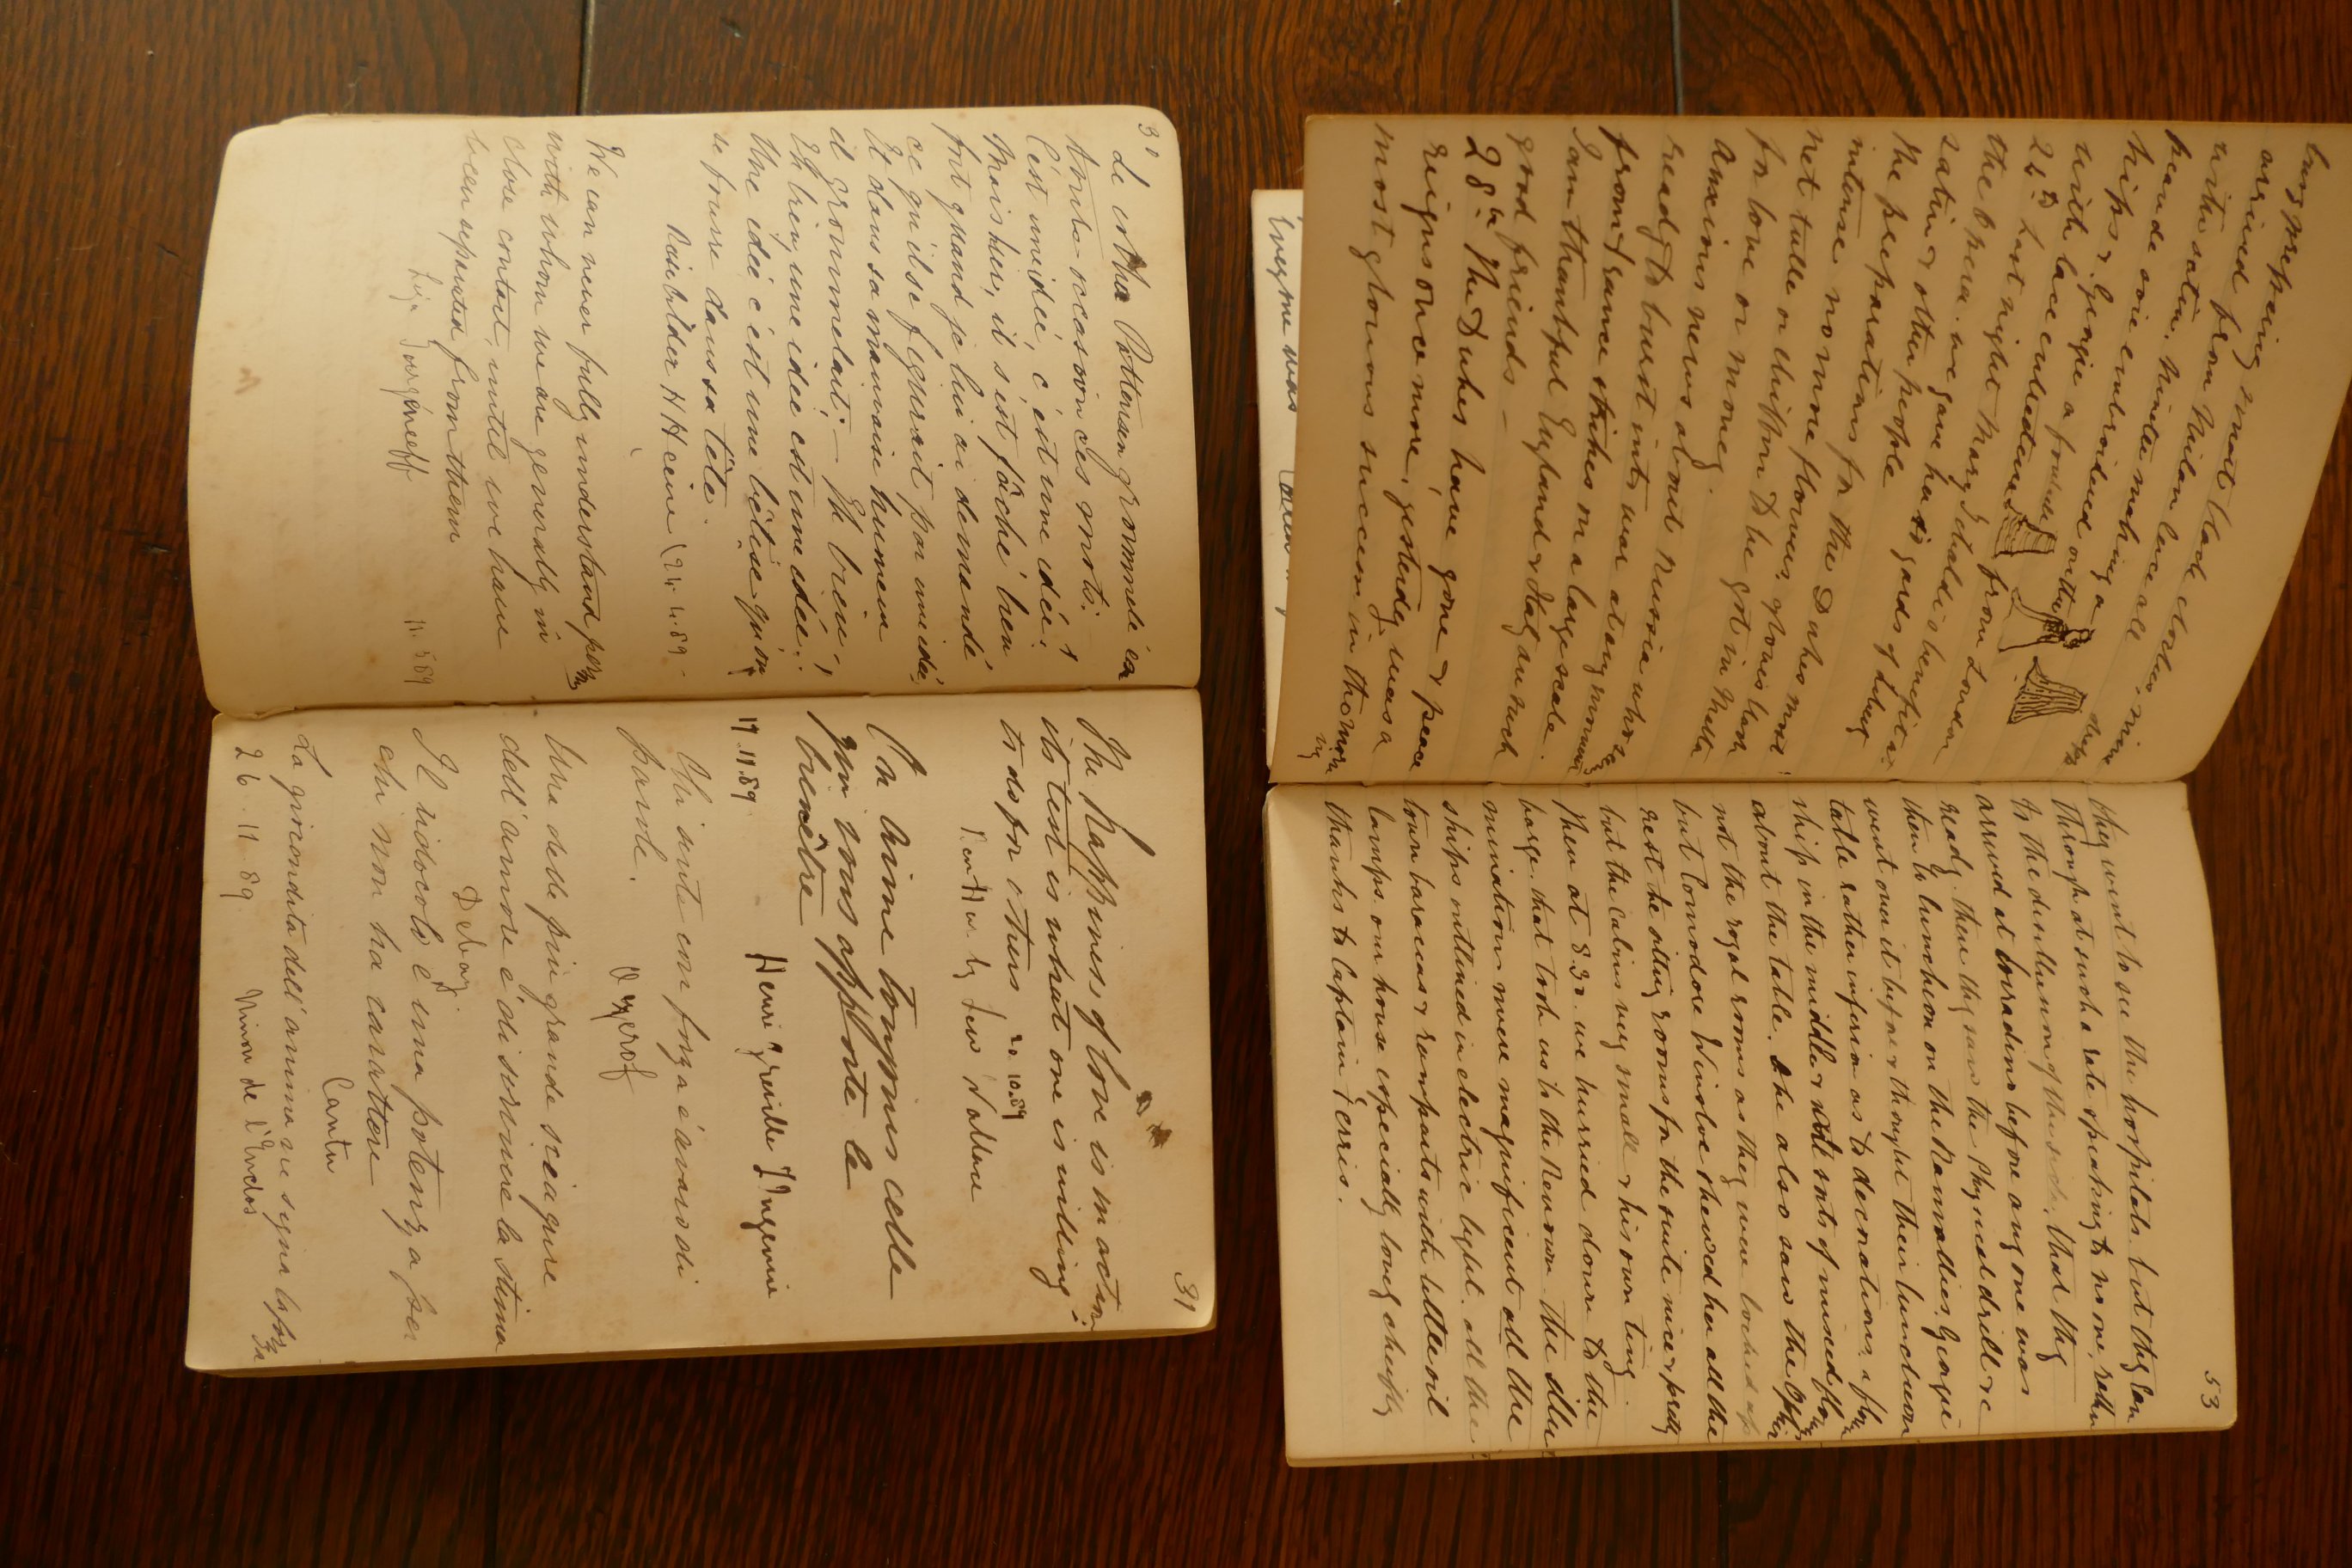 busy preparing smart black clothes, mine
arrived from Milan lace all
with satin. Ninette making a
peau de soie embroidered on the
hips & Georgie a foularde
with lace entredeux from London
24th Last night Mary Tebaldi's benefit at
the Opera. we gave her 10 yards of liberty
satin & other people
The preparations for the Dukes most
intense no more flowers, gloves black
net tulle or chiffon to be got in Malta
for love or money.
Anxious news about Russia who seems
ready to burst into war at any moment
from France strikes on a large scale.
I am thankful England & Italy are such
good friends —
28th The Dukes have gone & peace
reigns once more, yesterday was a
most glorious success in the morn
ing
Everyone was
53
they went to see the hospitals. but they ran
through at such a rate speaking to no one, rather
to the disillusion of the sick, that they
arrived at Corradino before any one was
ready. there they saw the Physical drill &c
then to luncheon on the Ramallies. Georgie
went over it before & thought their luncheon
table rather inferior as to decorations. a flower
ship in the middle & all sorts of mixed flowers
about the table. She also saw the Ophir
not the royal rooms as they were locked up
but Comodore Winsloe shewed her all the
rest the sitting rooms for the suite nice & pretty
but the cabins very small & his own tiny.
Then at 8.30. we hurried down to the
barge. that took us to the Renown. The illu
minations were magnificent all the
ships outlined in electric light. all the
town baraccas & ramparts with little oil
lamps. our house especially lovely cheifly
thanks to Captain Ferris.
30
Le Pattensen grommelé en
toute occasion ces mots:
C'est une idée, c'est une idée!
Mais hier, il s'est fâché bien
fort quand je lui ai demandé
ce qu'il se figurait par une idée,
Et dans sa mauvaise humeur
il grommelait; — Eh bien,
Eh bien, une idée est une idée!
Une idée c'est une bêtise qu'on
se fourre dans sa tête.
Reisebilder H Heine (24. 4. 89
We can never fully understand persons
with whom we are generally in
close contact, until we have
been separated from them
Liza Tourgéneeff 11. 5 89
31
The happiness of love is in action;
its test is what one is willing
to do for others 20. 10. 89
Ben Hur by Lew Wallace
On aime toujours celle
qui vous apporte le
bienêtre
Henri Greville L'Ingenue
19. 11. 89
Chi sente con forza é avaro di
parole.
Ozerof
Una delle piu grande sciagure
dell' amore é di scrivere la stima
Debay.
Il ridocolo é una potenza per
chi non ha carattere
Cantu
La giocondita dell' anima ne segna la forza
26. 11. 89 Ninon de l'Enclos